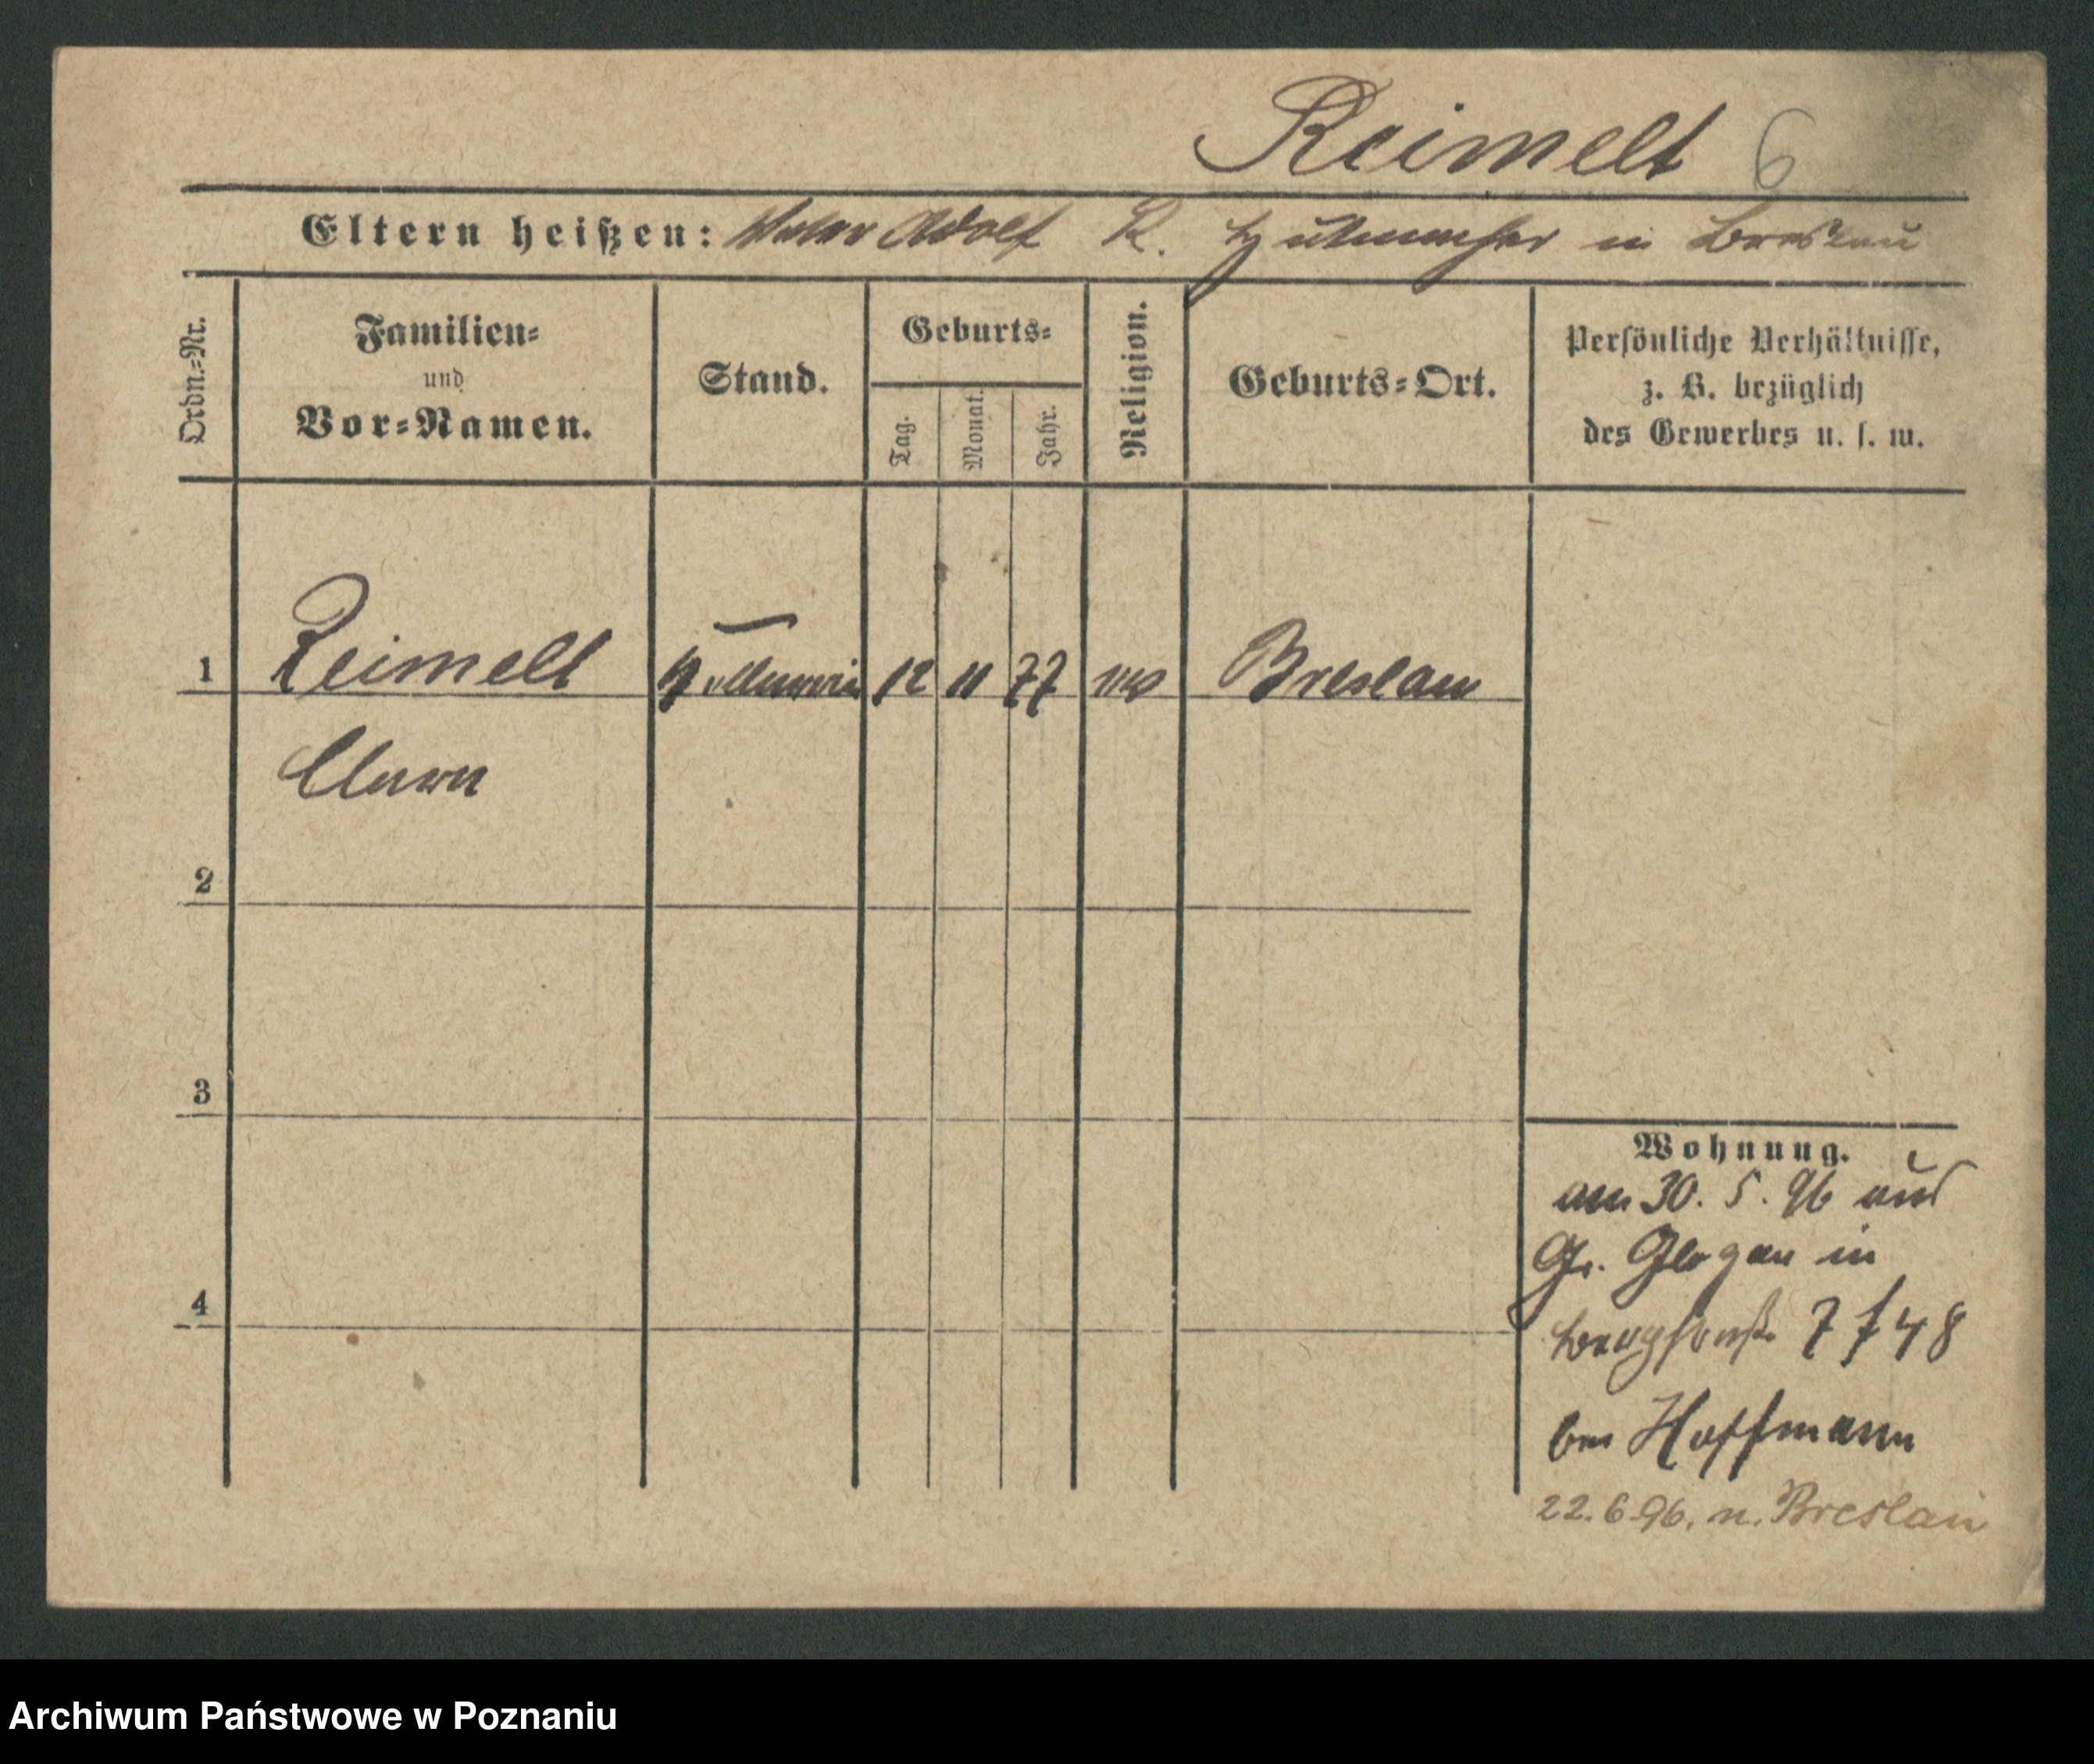 Reimelt 6
Eltern heißen: Vater Adolf R. Hutmacher in Breslau
Ordn.=Nr.
Familien=
und
Vor=Namen.
Stand.
Geburts=
Tag.
Monat.
Jahr.
Religion.
Geburts=Ort.
Persönliche Verhältnisse,
z. B. bezüglich
des Gewerbes u. s. w.
1 Reimelt 12 11 77 Breslau
2
3
4
Wohnung.
am 30. 5. 96 aus
Gr. Glogau in
Bergstraße 7 f 48
bei Hoffmann
22.6.96. n. Breslau
Archiwum Państwowe w Poznaniu